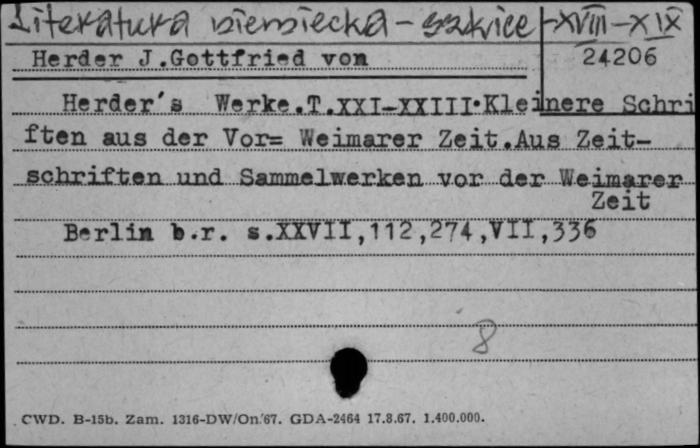 Literatura niemiecka - szkice XVIII-XIX
Herder J.Gottfried von 24206
Herder's Werke.T.XXI-XXIII.Kleinere Schri
ften aus der Vor= Weimarer Zeit.Aus Zeit-
schriften und Sammelwerken vor der Weimarer
Zeit
Berlin b.r. s.XXVII,112,274,VII,336
8
CWD. B-15b. Zam. 1316-DW/On.'67. GDA-2464 17.8.67. 1.400.000.